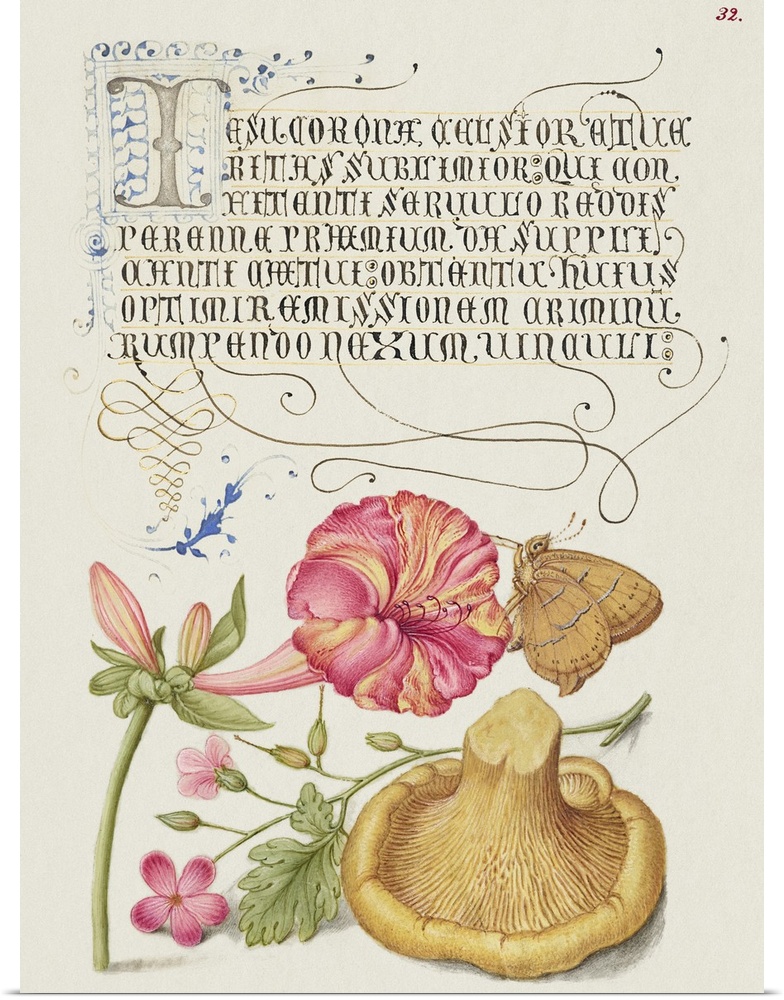 32.
IESU CORONA CELSIOR ET UE
RITAS SUBLIMIOR: QUI CON
FITENTI SERUULO REDDIS
PERENNE PRÆMIUM. DA SUPPLI
CANTI CÆTUI: OBTENTU HUIUS
OPTIMI REMISSIONEM CRIMINU
RUMPENDO NEXUM, UINCULI: